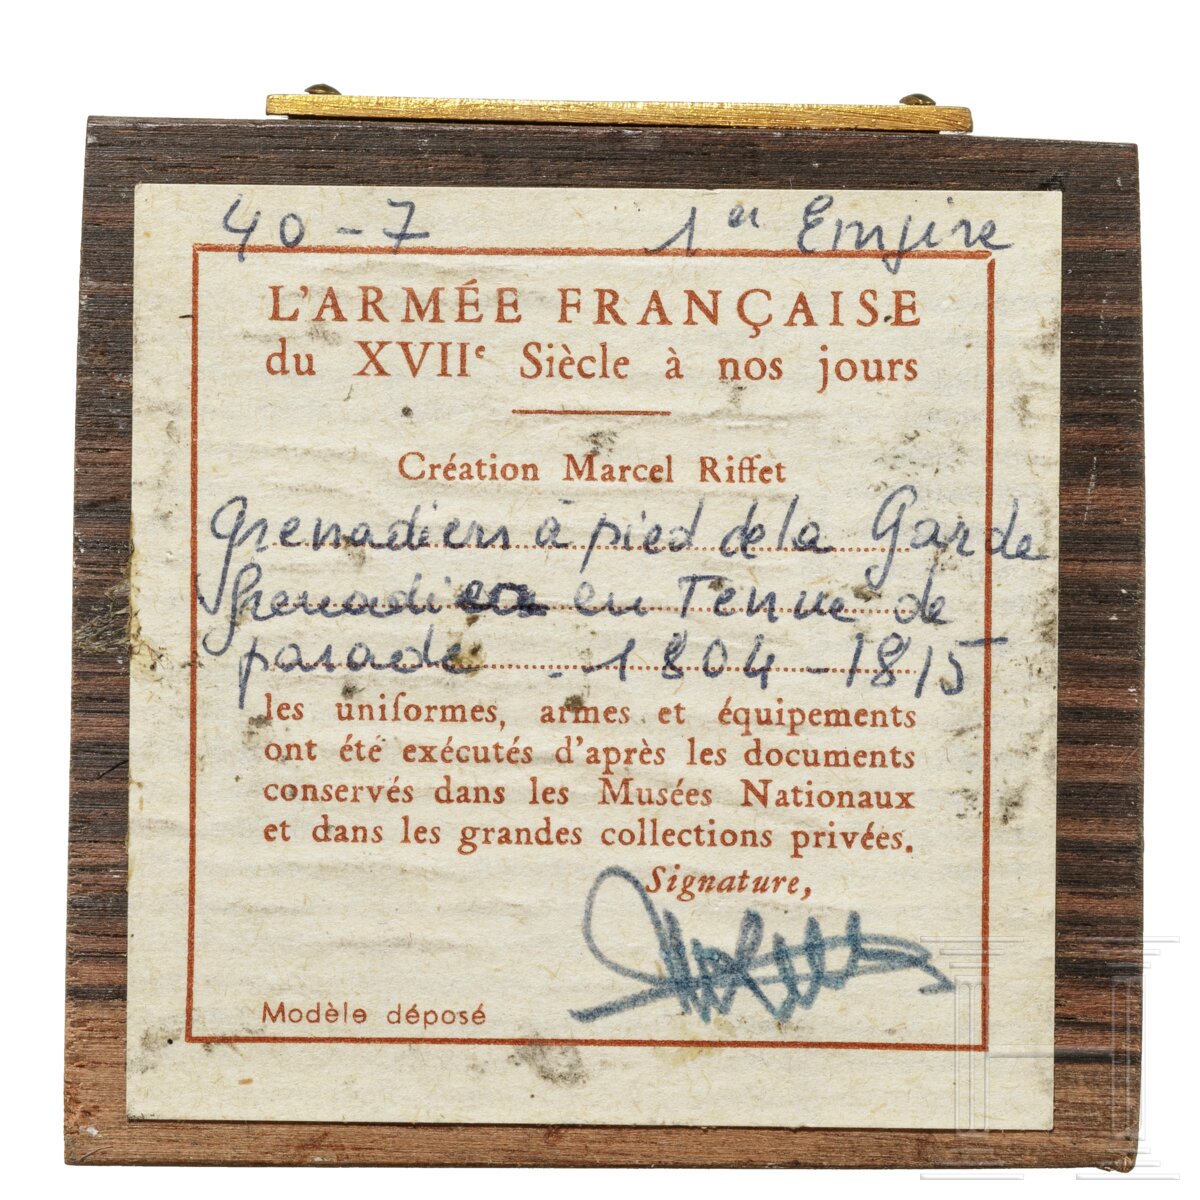 40-7 1er Empire
L'ARMÉE FRANÇAISE
du XVIIe Siècle à nos jours
Création Marcel Riffet
Grenadiers à pied de la Garde
Grenadier en Tenue de
parade - 1804-1815
les uniformes, armes et équipements
ont été exécutés d'après les documents
conservés dans les Musées Nationaux
et dans les grandes collections privées.
Signature,
Modèle déposé